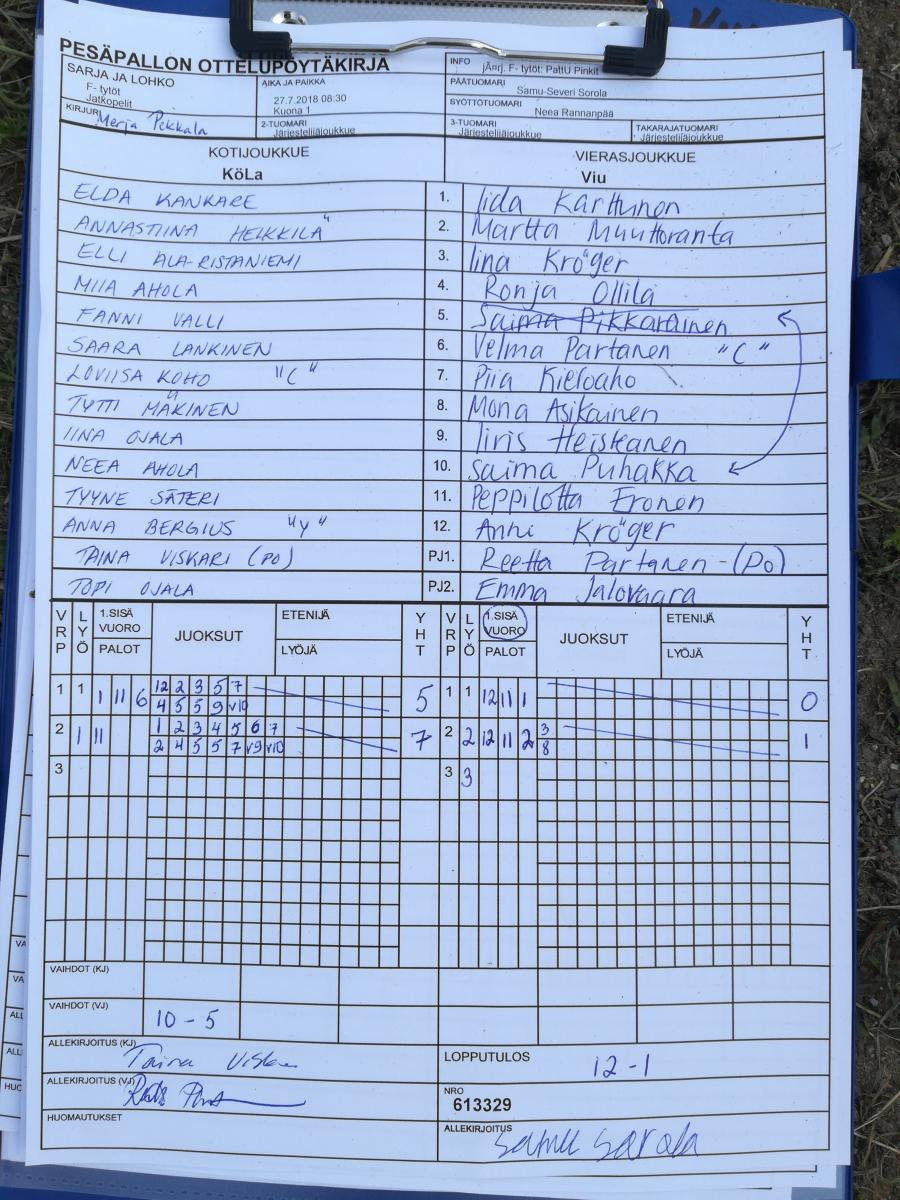 PESÄPALLON OTTELUPÖYTÄKIRJA
SARJA JA LOHKO
F- tytöt
Jatkopelit
AIKA JA PAIKKA
27.7.2018 08:30
Kuona 1
KIRJURI
Merja Pekkala
2-TUOMARI
Järjestelijäjoukkue
INFO
jÄ¤rj. F- tytöt: PattU Pinkit
PÄÄTUOMARI
Samu-Severi Sorola
SYÖTTÖTUOMARI
Neea Rannanpää
3-TUOMARI
Järjestelijäjoukkue
TAKARAJATUOMARI
Järjestelijäjoukkue
KOTIJOUKKUE
KöLa
VIERASJOUKKUE
Viu
ELDA KANKARE 1. Iida Karttunen
ANNASTIINA HEIKKILÄ 2. Martta Muuttoranta
ELLI ALA-RISTANIEMI 3. Iina Kröger
MIIA AHOLA 4. Ronja Ollila
FANNI VALLI 5. Saima Pikkarainen
SAARA LANKINEN 6. Velma Partanen "C"
LOVIISA KOHO "C" 7. Piia Kieloaho
TYTTI MÄKINEN 8. Mona Asikainen
IINA OJALA 9. Iiris Heiskanen
NEEA AHOLA 10. Saima Puhakka
TYYNE SÄTERI 11. Peppilotta Eronen
ANNA BERGIUS "Y" 12. Anni Kröger
TAINA VISKARI (PO) PJ1. Reetta Partanen - (Po)
TOPI OJALA PJ2. Emma Jalovaara
VRP LYÖ 1.SISÄ VUORO PALOT JUOKSUT ETENIJÄ LYÖJÄ YHT VRP LYÖ 1.SISÄ VUORO PALOT JUOKSUT ETENIJÄ LYÖJÄ YHT
1 1 1 11 6 12 2 3 5 7 5 1 1 12 11 1 0
4 5 5 9 v10
2 1 11 1 2 3 4 5 6 7 7 2 2 12 11 2 3 1
2 4 5 5 7 v9 v10 8
3 3 3
VAIHDOT (KJ)
VAIHDOT (VJ)
10 - 5
ALLEKIRJOITUS (KJ)
Taina
LOPPUTULOS
12 - 1
ALLEKIRJOITUS (VJ)
NRO
613329
HUOMAUTUKSET
ALLEKIRJOITUS
Samu Sorola